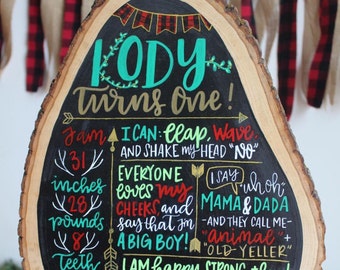 KODY
turns one!
I am
31
inches
28
pounds
8
Teeth
I CAN: clap, wave,
AND SHAKE MY HEAD "NO"
EVERYONE
loves my
CHEEKS and
say that I'm
A BIG BOY!
I SAY uh oh,
MAMA & DADA
-AND THEY CALL ME-
"animal" +
"OLD-YELLER"
I AM happy, STRONG